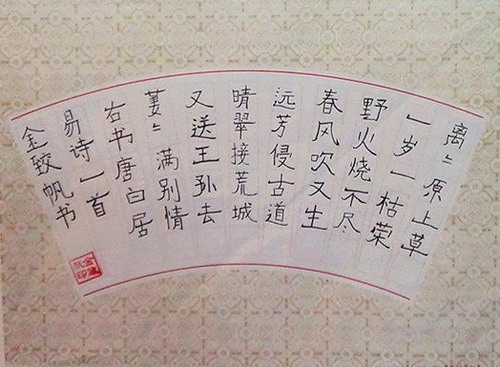 离〻原上草
一岁一枯荣
野火烧不尽
春风吹又生
远芳侵古道
晴翠接荒城
又送王孙去
萋〻满别情
右书唐白居
易诗一首
金帆书